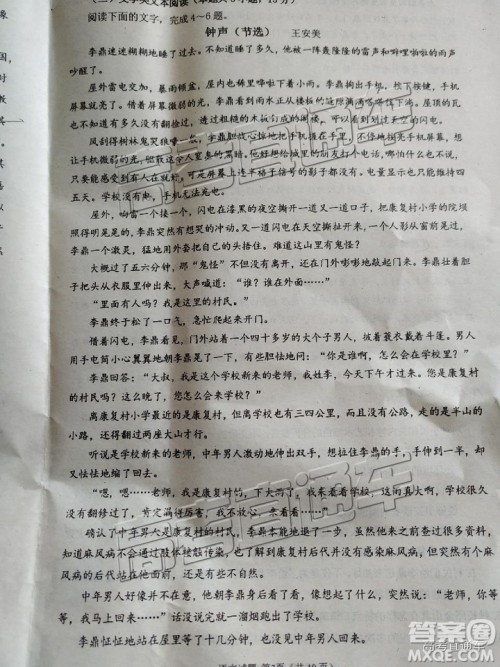 阅读下面的文字，完成4~6题。
钟声（节选）　王安美
李鼎迷迷糊糊地睡了过去。不知道睡了多久，他被一阵轰隆隆的雷声和噼哩啦啦的雨声
吵醒了。
屋外雷电交加，暴雨倾盆，屋内也稀稀疏疏地下起了小雨。李鼎掏出手机，按下按键，手机
屏幕就亮了。借着屏幕微弱的光，李鼎看到雨水正从楼板的
不知道有多久没有翻捡过，透过粗糙的木板钉成的阁楼，可以不时到划过天空的闪电。
风刮得树林鬼哭狼嚎一般，李鼎胆战心惊地把手机拽在手里，不停地摁亮手机屏幕，想
让手机微弱的光
只要能感受到有人在就好，可是屏幕上连半个格子信号的影子都没有。电量显示也只能维持四
五天。学校没有电，手机无法充电。
屋外，响雷一个接一个，闪电在漆黑的夜空撕开一道又一道口子，把康复村小学的院坝
照得明晃晃的，李鼎突然有想哭的冲动。又一道闪电在天空撕开，一个人影从窗前晃过，
李鼎一个激灵，猛地用外套盖住自己的头捂住。难道这山里有鬼怪？
大概过了五六分钟，那“鬼怪”不但没有离开，还在门外嘭嘭地敲起门来。李鼎壮着胆
子把头从衣服里伸出来，大声喊道：“谁？谁在外面……”
“里面有人吗？我是这里的村民。”
李鼎终于松了一口气，急忙爬起来开门。
借着闪电，李鼎看见，门外站着一个四十多岁的大个子男人，披着蓑衣戴着斗篷。男人
用手电筒小心翼翼地朝李鼎晃了一下，有些胆怯地问：“你是谁啊，怎么会在学校里？”
李鼎回答：“大叔，我是这个学校新来的老师，我姓李，今天下午才过来。您是康复村
的村民吗？这么晚了，您怎么会来学校？”
离康复村小学最近的是康复村，但也有三四公里，而且没有公路，走的是半山的
小路，还得翻过两座大山才行。
听说是学校新来的老师，中年男人激动地伸出双手，想拉李鼎的手，手伸到一半，却
又怯怯地缩了回去。
“嗯，嗯……老师，我是康复村的
久没有翻修过，肯定漏得厉害，我不放心，来看看……”
确认了中年男人是康复村的村民，李鼎本能地退了一步，虽然他来之前查过很多资料，
知道麻风病不会通过肢体接触传染，也了解到康复村后代并没有感染麻风病，但突然有个麻
风病的后代站在他面前，还是有些不自然。
中年男人好像并不在意，他朝李鼎身后看了看，像想起了什么，突然说：“老师，你等
等，我马上回来……”话没说完就一溜烟跑出了学校。
李鼎怔怔地站在屋里等了十几分钟，也没见中年男人回来。